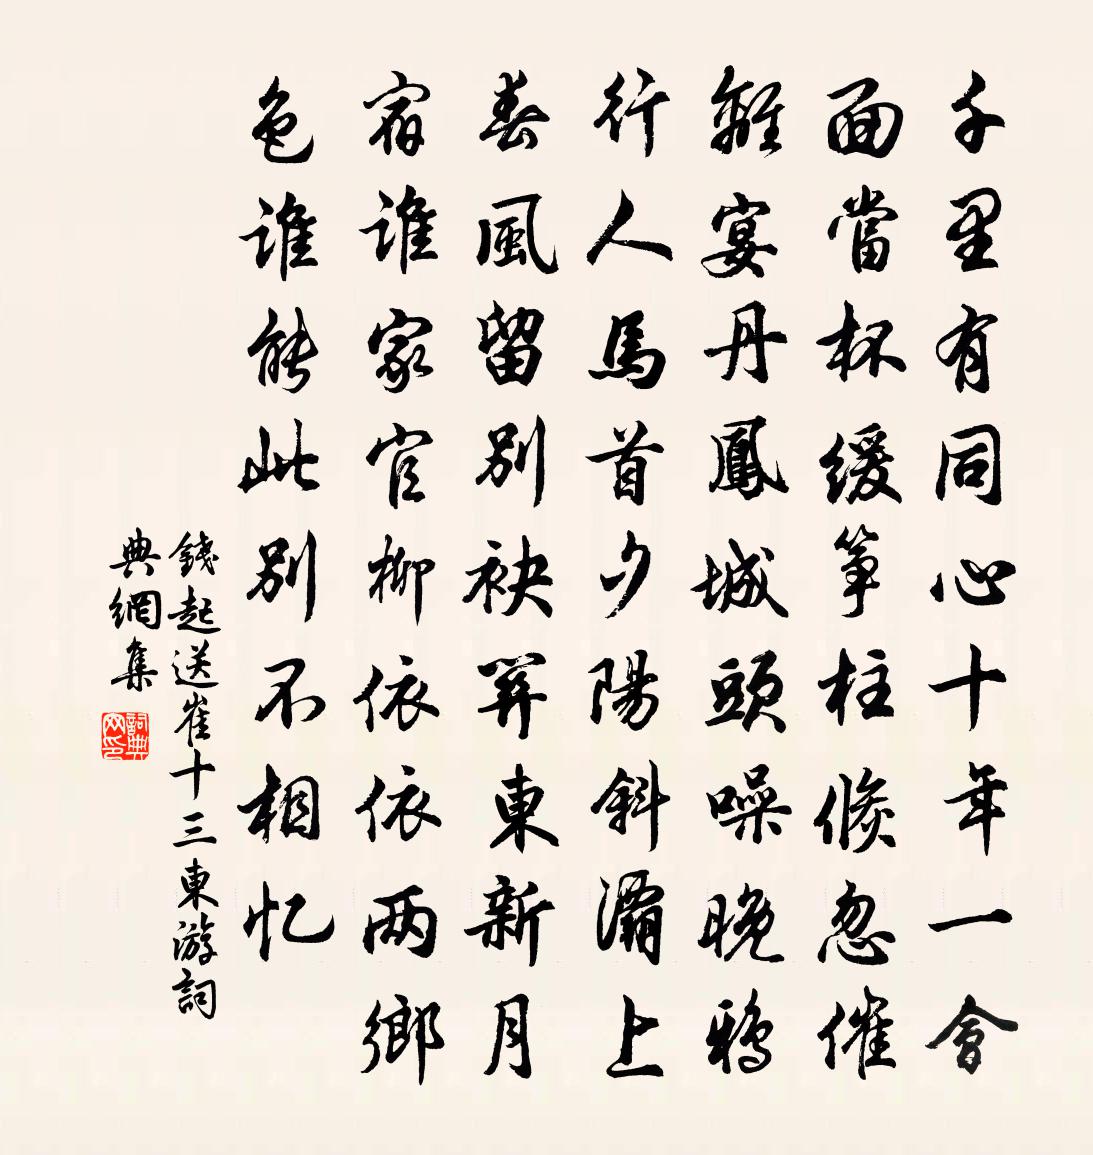 千里有同心十年一會
面當杯緩箏柱倏忽催
離宴丹鳳城頭噪晚鴉
行人馬首夕陽斜灞上
春風留別袂關東新月
宿誰家官柳依依两鄉
色誰能此別不相忆
錢起送崔十三東游詞
典網集
詞典
网印